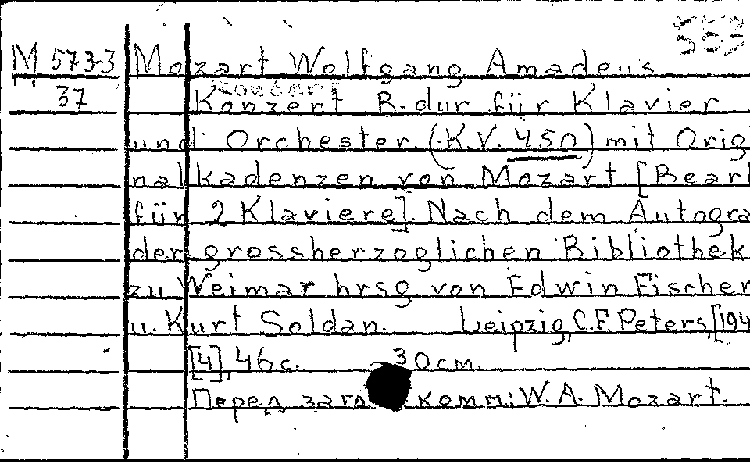 553
M 5733 Mozart Wolfgang Amadeus
37 Konzert B-dur für Klavier
und Orchester (K.V. 450) mit Orig
nalkadenzen von Mozart [Bearb
für 2 Klaviere]. Nach dem Autogra
der grossherzoglichen Bibliothek
zu Weimar hrsg von Edwin Fischer
u. Kurt Soldan. Leipzig, C.F. Peters, [194
[4], 46 c. 30 cm.
Перед загл комп: W. A. Mozart.